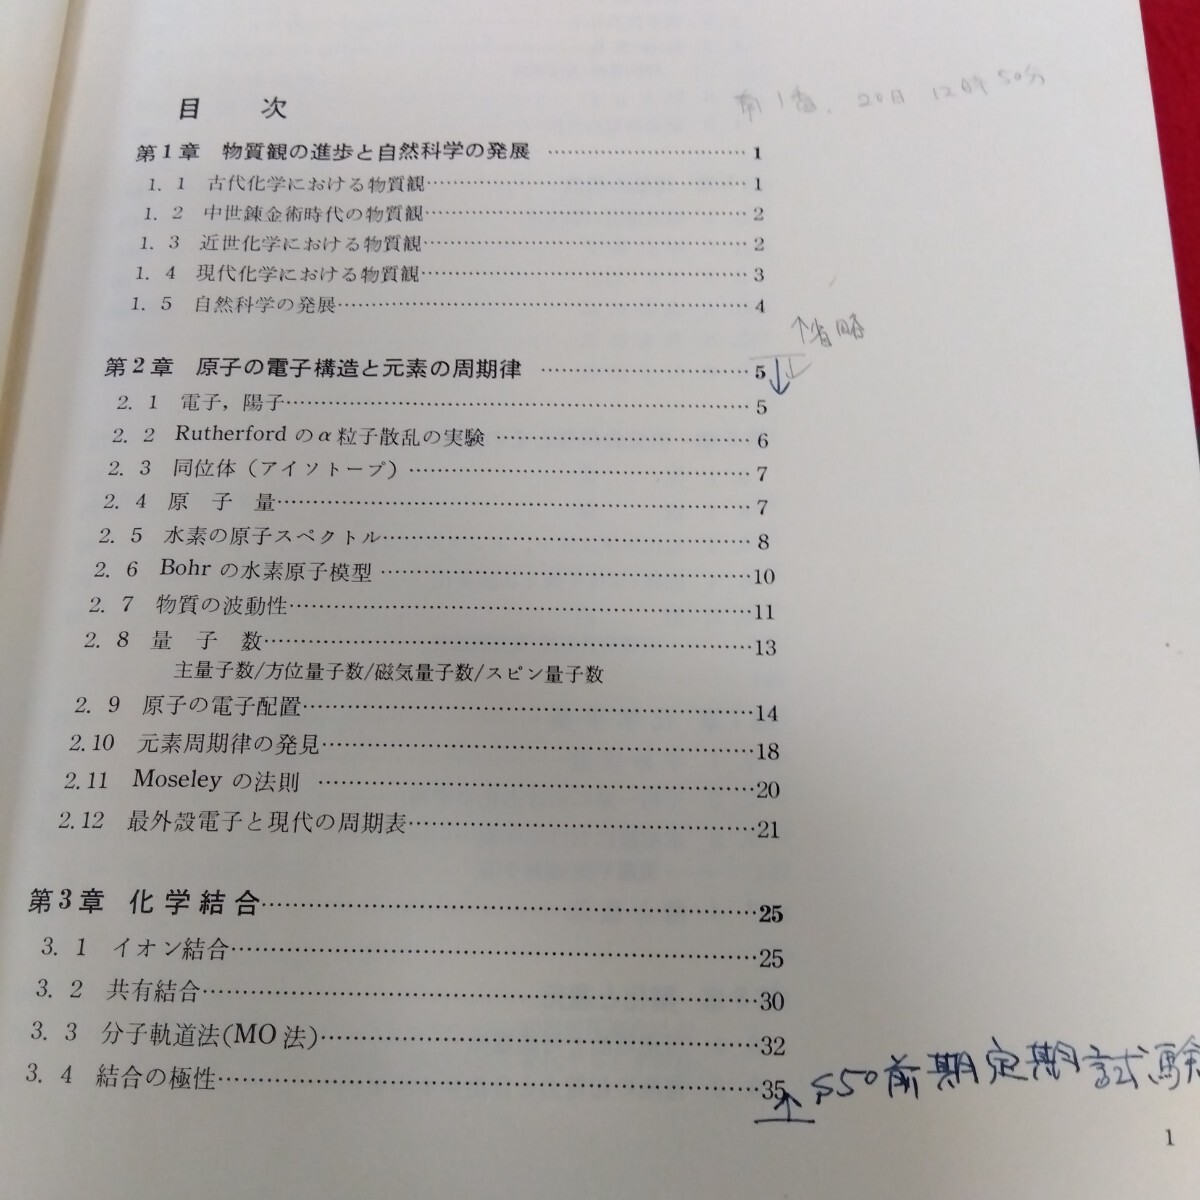 目 次
南1番. 20日 12時50分
第1章 物質観の進歩と自然科学の発展 …………………………… 1
1. 1 古代化学における物質観…………………………… 1
1. 2 中世錬金術時代の物質観…………………………… 2
1. 3 近世化学における物質観…………………………… 2
1. 4 現代化学における物質観…………………………… 3
1. 5 自然科学の発展…………………………… 4
↑省略
第2章 原子の電子構造と元素の周期律 …………………………… 5
2. 1 電子，陽子…………………………… 5
2. 2 Rutherford のα粒子散乱の実験 …………………………… 6
2. 3 同位体（アイソトープ） …………………………… 7
2. 4 原 子 量…………………………… 7
2. 5 水素の原子スペクトル…………………………… 8
2. 6 Bohr の水素原子模型 ……………………………10
2. 7 物質の波動性……………………………11
2. 8 量 子 数……………………………13
主量子数/方位量子数/磁気量子数/スピン量子数
2. 9 原子の電子配置……………………………14
2.10 元素周期律の発見……………………………18
2.11 Moseley の法則 ……………………………20
2.12 最外殻電子と現代の周期表……………………………21
第3章 化学結合……………………………25
3. 1 イオン結合……………………………25
3. 2 共有結合……………………………30
3. 3 分子軌道法(MO 法)……………………………32
3. 4 結合の極性……………………………35
↑ S50前期定期試験
1